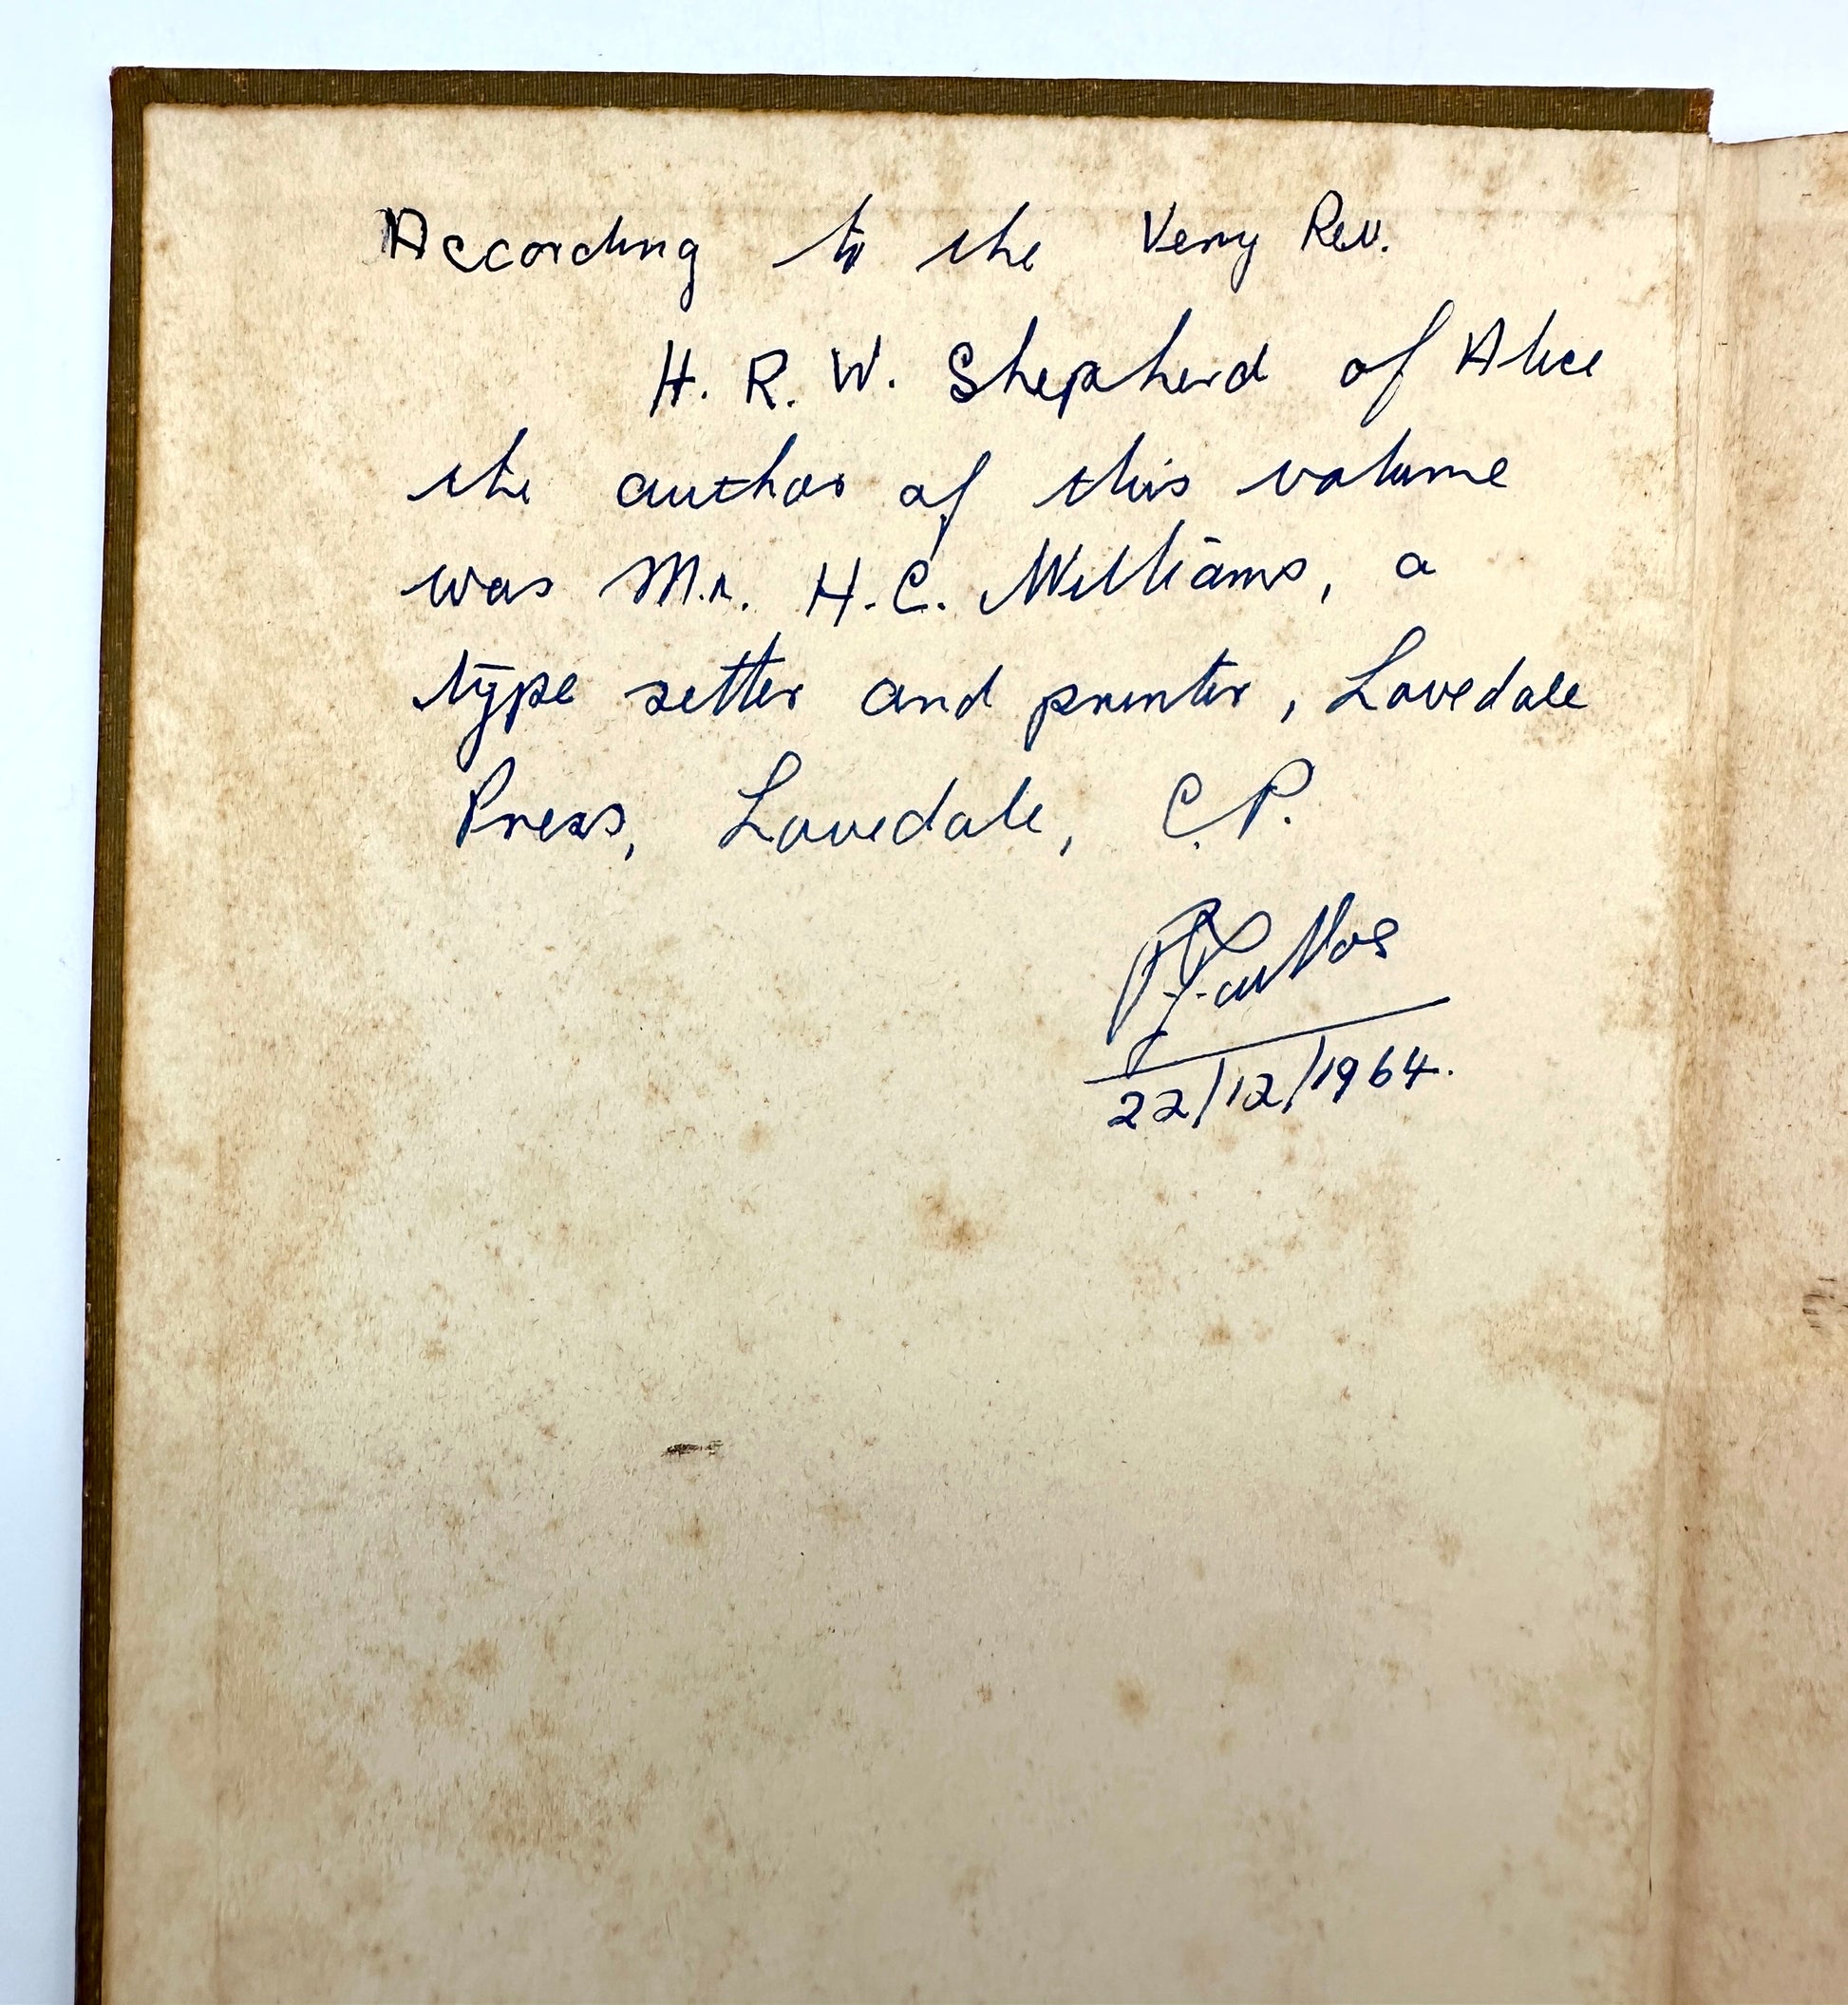 According to the Very Rev.
H. R. W. Shepherd of Alice
the author of this volume
was Mr. H. C. Williams, a
type setter and printer, Lovedale
Press, Lovedale, C.P.
22/12/1964.